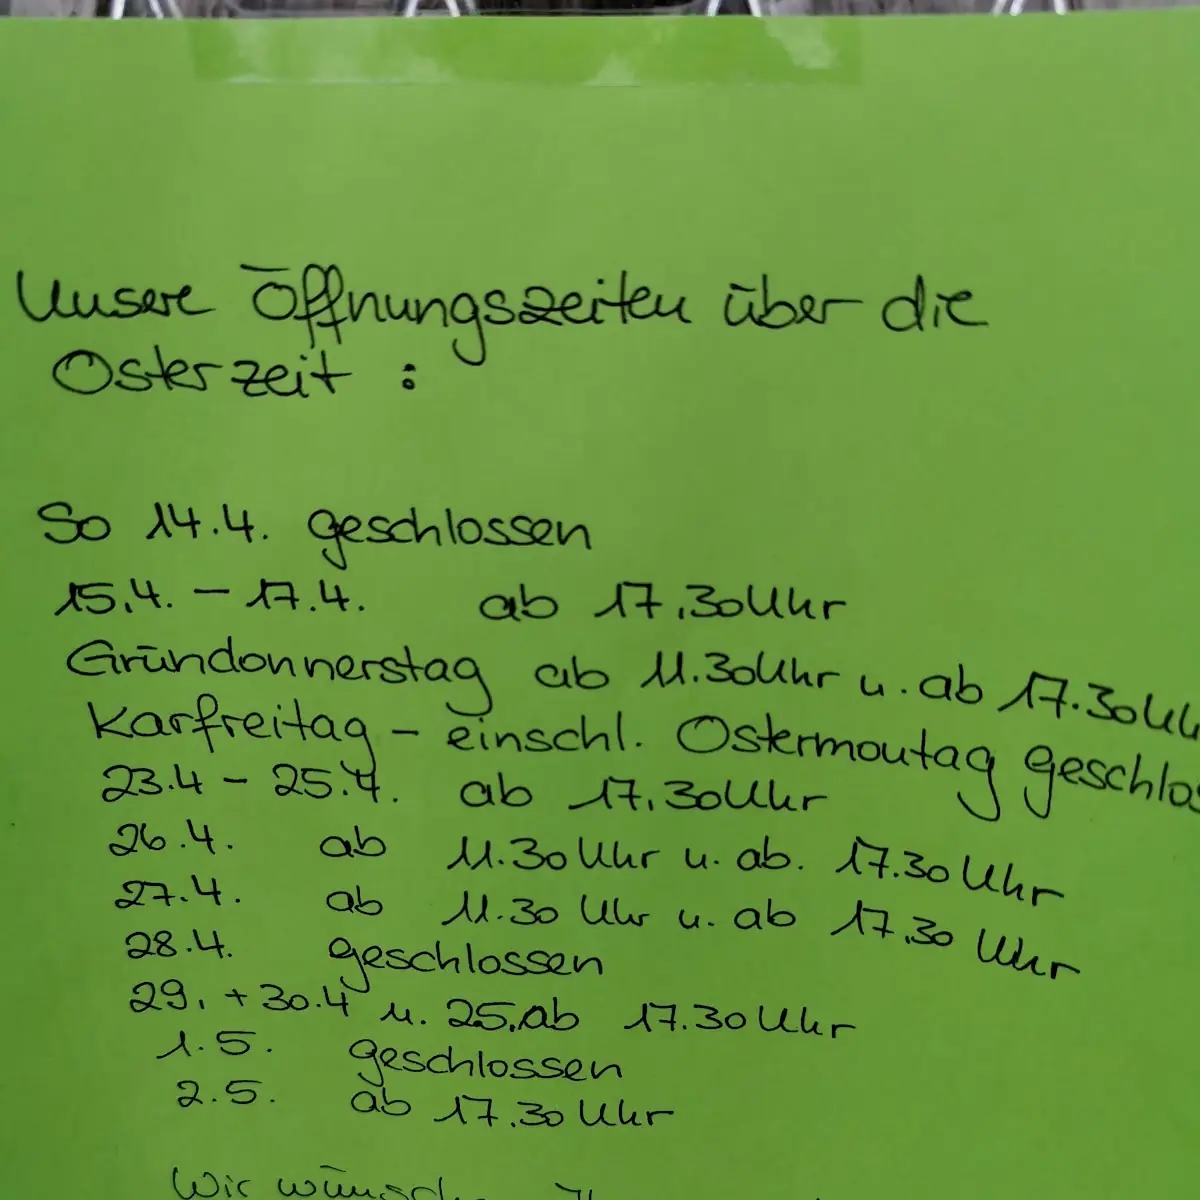 Unsere Öffnungszeiten über die
Osterzeit :
So 14.4. geschlossen
15.4. - 17.4. ab 17.30 Uhr
Gründonnerstag ab 11.30 Uhr u. ab 17.30 Uh
Karfreitag - einschl. Ostermontag geschlos
23.4 - 25.4. ab 17.30 Uhr
26.4. ab 11.30 Uhr u. ab. 17.30 Uhr
27.4. ab 11.30 Uhr u. ab 17.30 Uhr
28.4. geschlossen
29. + 30.4 u. 25. ab 17.30 Uhr
1.5. geschlossen
2.5. ab 17.30 Uhr
Wir